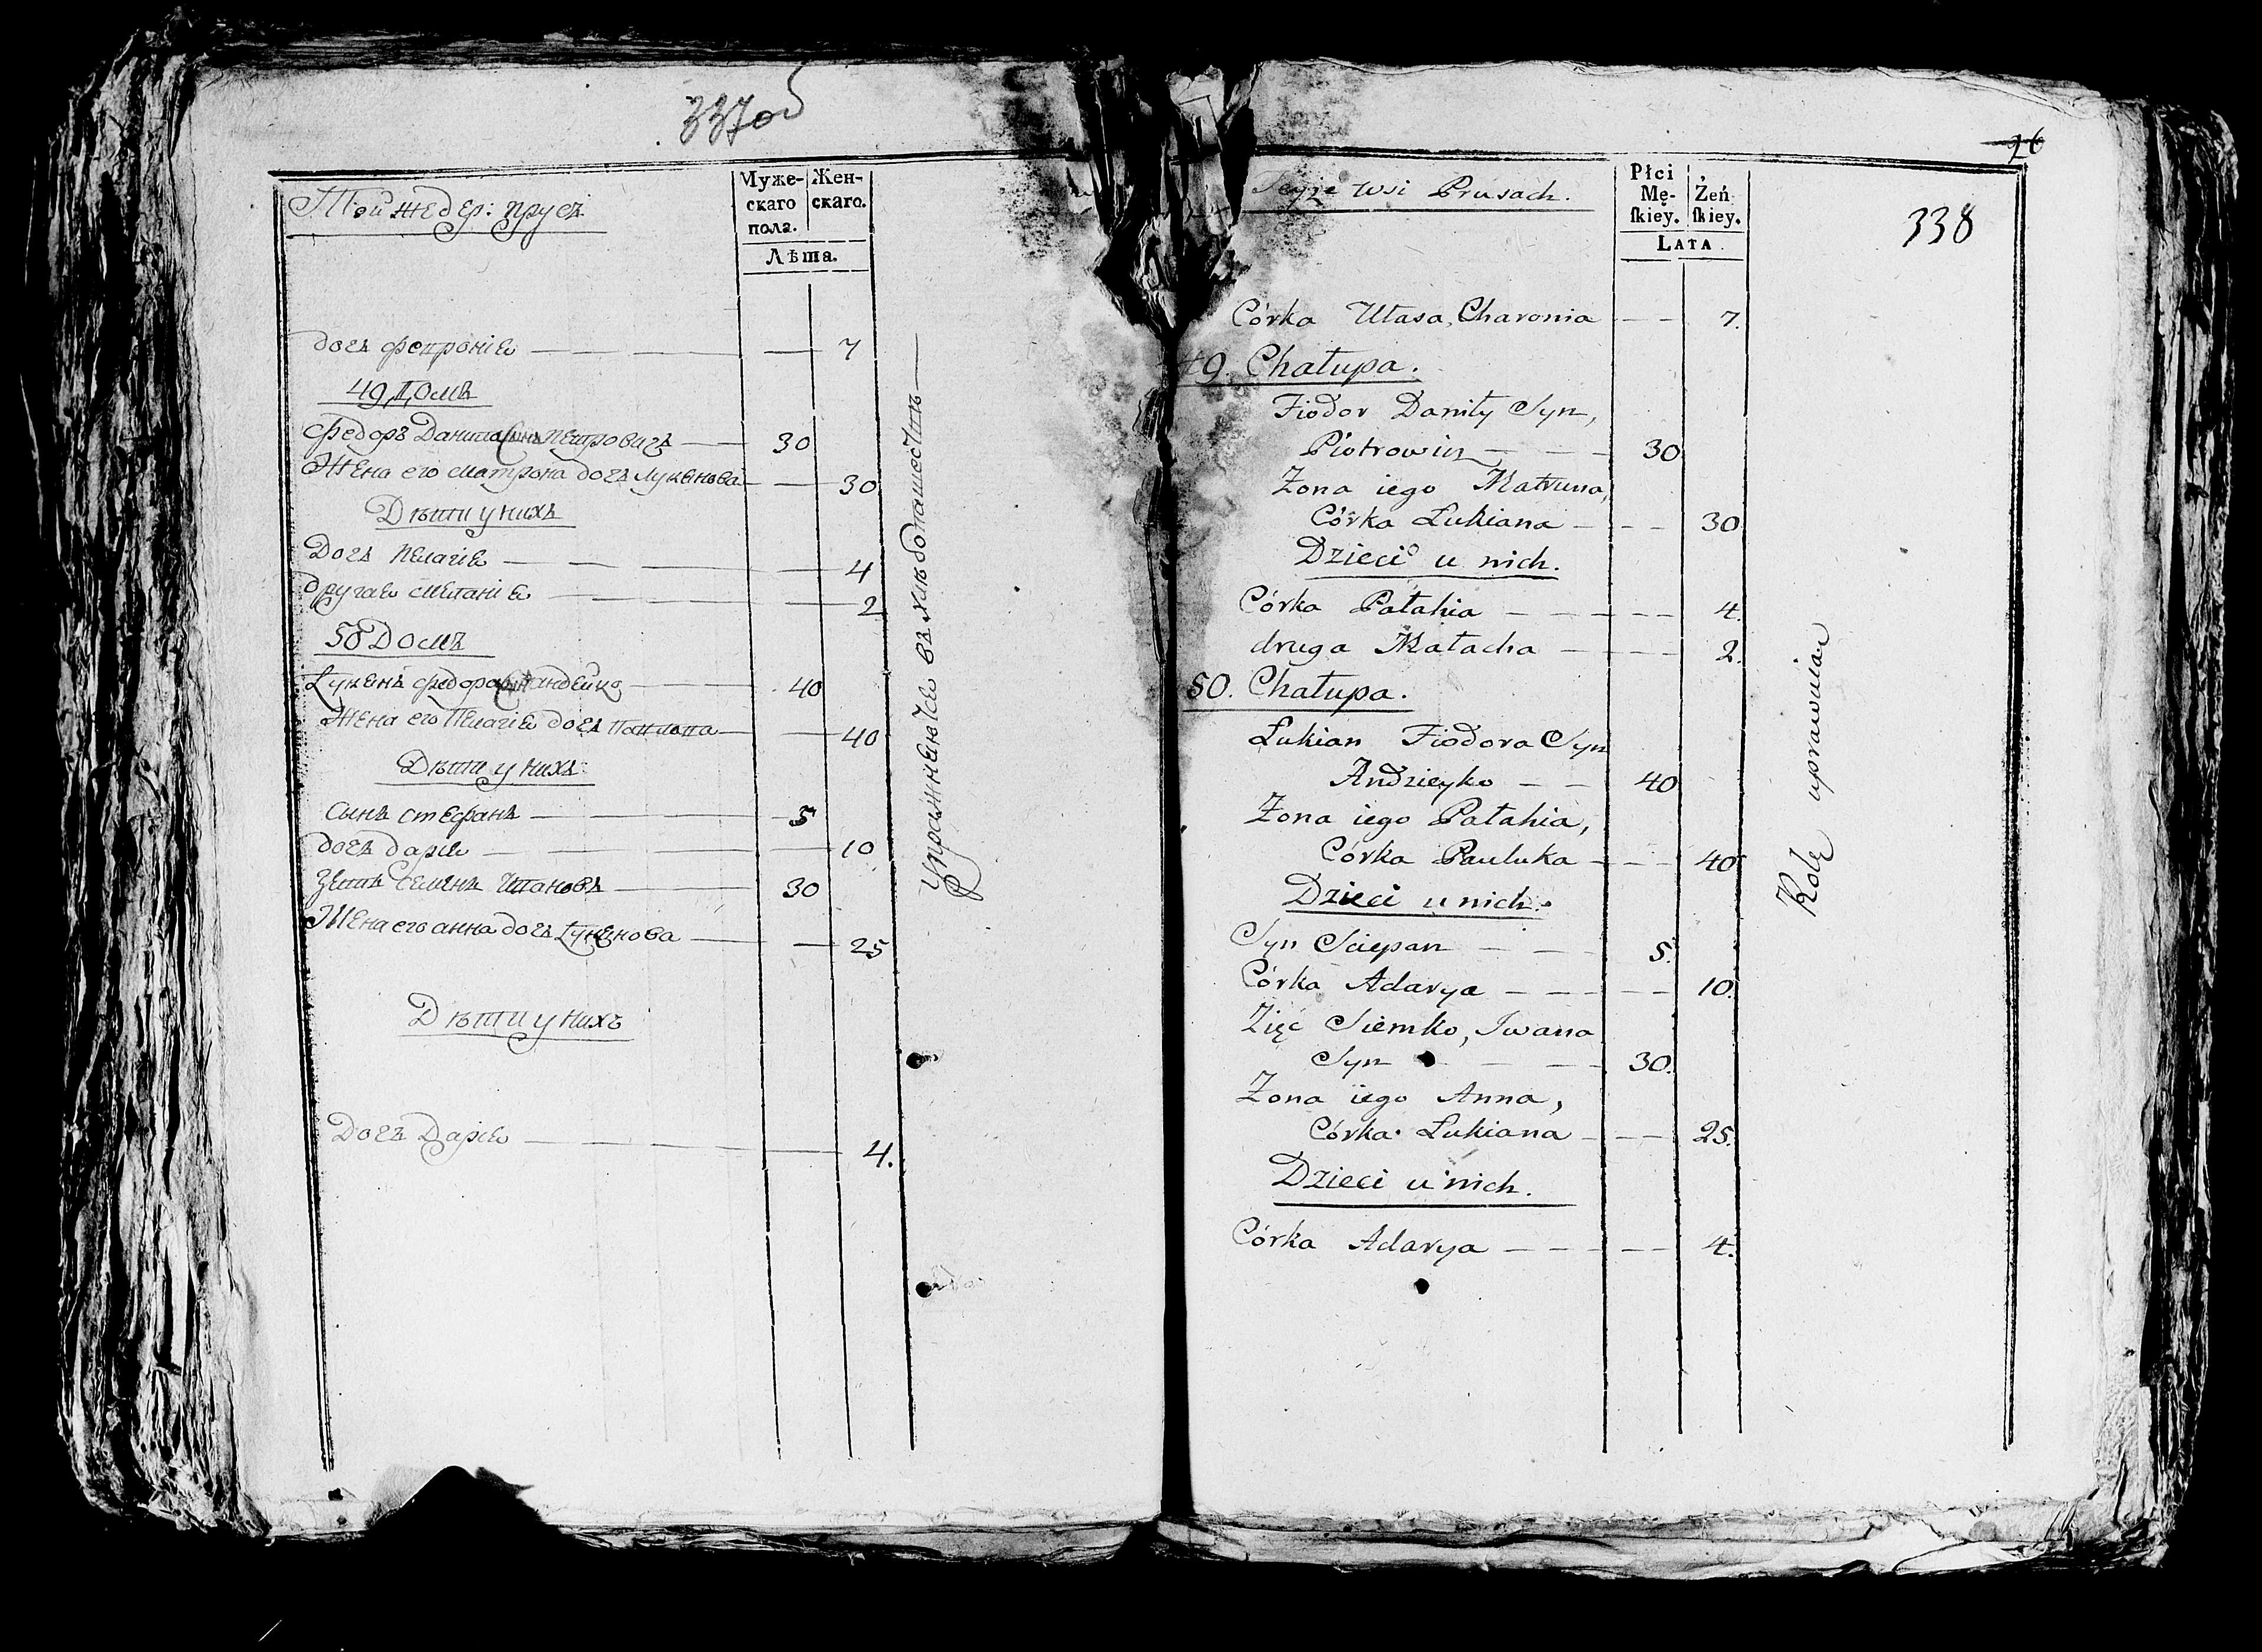 337об
Той же дер: прусъ
Муже-
скаго
пола.
Жен-
скаго.
Лѣта.
дочъ фепронія — 7
49 Домъ
Федоръ Данила Сынъ Петровичъ — 30
Жена его матрона дочъ лукьнова — 30
Дѣти у нихъ
Дочъ пелагія — 4
другая меланія — 2
50 Домъ
Лукьянъ федора Сынъ андейко — 40
Жена его Пелагія дочъ — 40
Дѣти у нихъ
сынъ стефанъ — 5
дочъ дарія — 10
зять семенъ ивановъ — 30
Жена его анна дочъ — 25
Дѣти у нихъ
Дочъ Дарія — 4.
въ хлебопашестве
26
338
Teyże wsi Prusach.
Płci
Mę-
skiey.
Żeń
skiey.
LATA
Córka Ułasa, Charonia — 7.
49. Chałupa.
Fiodor Daniły Syn,
Piotrowicz — 30
Żona iego Matruna,
Córka Łukiana — 30
Dzieci u nich.
Córka Pałahia — 4.
druga Małacha — 2.
50. Chałupa.
Łukian Fiodora Syn
Andzieyko — 40
Żona iego Pałahia,
Córka Pauluka — 40
Dzieci u nich.
Syn Sciepan — 5.
Córka Adarya — 10.
Zięć Siemko, Iwana
Syn — 30.
Żona iego Anna,
Córka Łukiana — 25.
Dzieci u nich.
Córka Adarya — 4.
Rolę uprawuian